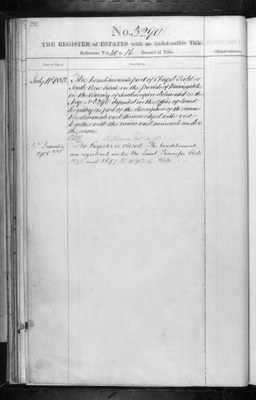 22
No. 3290
THE REGISTER of ESTATES with an Indefeasible Title
Reference Vol. 16 Record of Title.
Date of Entry. Description. Observations.
July 11th 1883. The hereditaments part of Chapel Field or
South in the parish of
in the County of Southampton delineated on the
Map No. 3290 deposited in the Office of Land
Registry as part of the description of the same
hereditaments and thereon edged with red
together with the mines and minerals under
the same.
December
The Register is closed. The hereditaments
are registered under the Land Transfer Acts
1875 and 1897